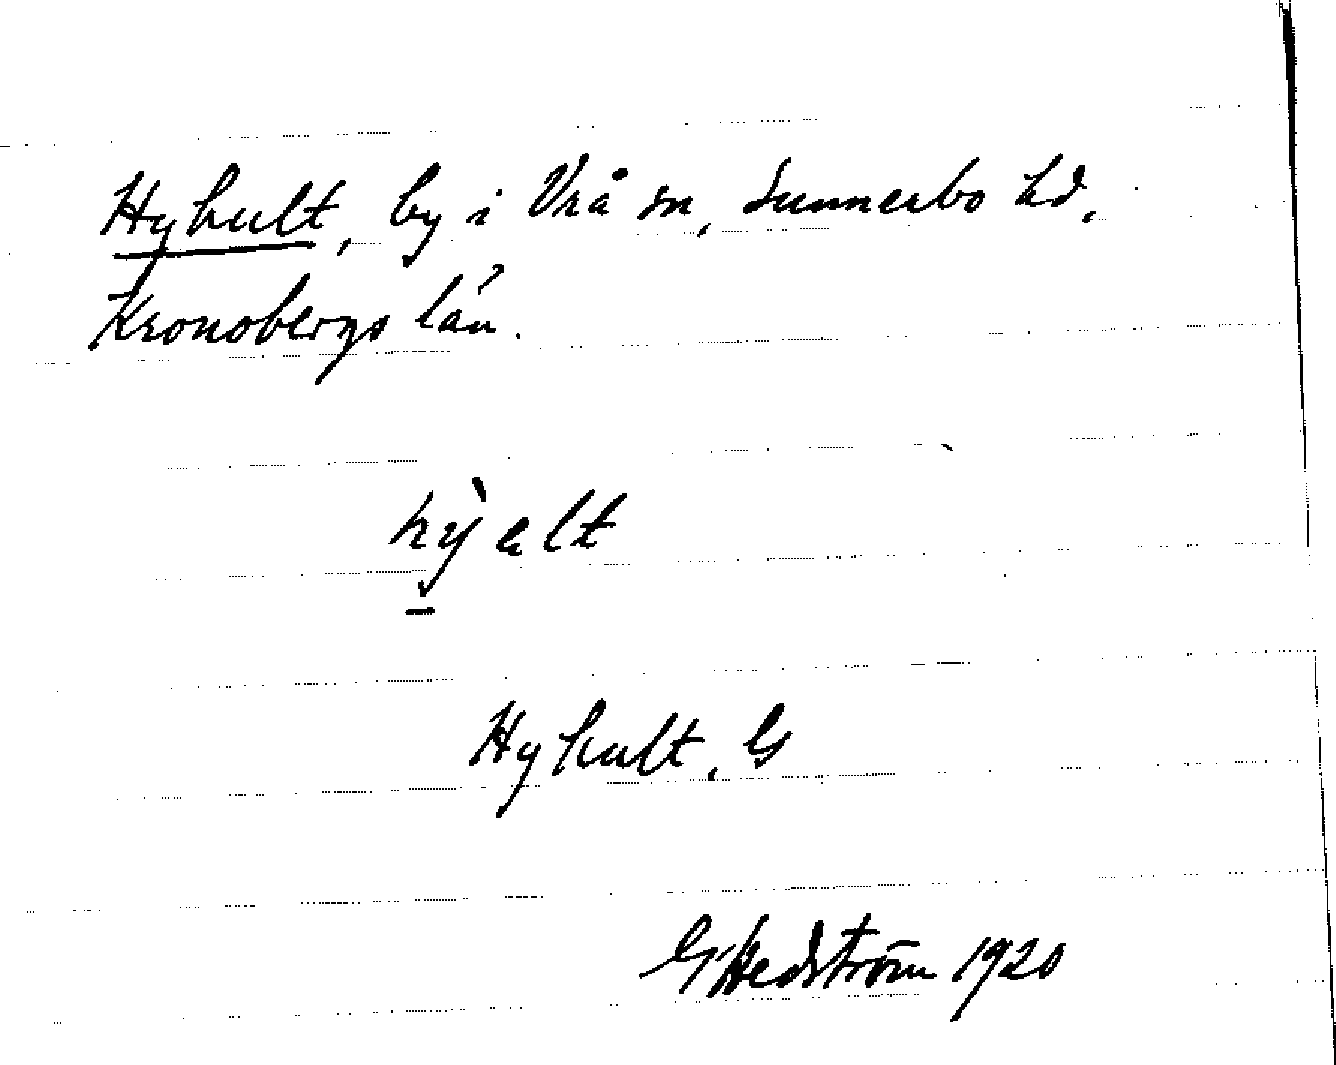 Hyhult, by i Vrå sn, Sunnerbo hd,
Kronobergs län.
hỳalt
Hyhult, G
G Hedström 1920